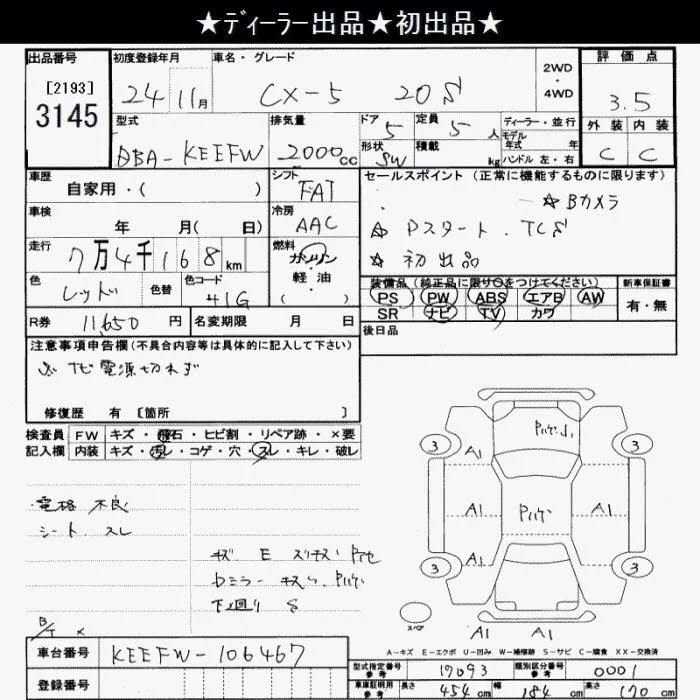 ★ディーラー出品★初出品★
出品番号 初度登録年月 車名・グレード 2WD・4WD 評価点
[2193]
3145 24 11月 CX-5 20S 3.5
型式 排気量 ドア 定員 ディーラー・並行 外装 内装
DBA-KEEFW 2000cc 5 5人 モデル年式 年 C C
形状 SW 積載 kg ハンドル 左・右
車歴 シフト セールスポイント(正常に機能するものに限ります)
自家用・( ) FAT ☆Bカメラ
車検 冷房 ☆ Pスタート.TCS
年 月( 日) AAC ☆ 初出品
走行 燃料 装備品(純正品に限り○をつけてください) 新車保証書
7万4千168km ガソリン・軽油・( ) PS PW ABS エアB AW 有・無
色 色替 色コード SR ナビ TV カワ
レッド 41G 後日品
R券 11,650円 名変期限 月 日
注意事項申告欄(不具合内容等は具体的に記入して下さい)
※ TV電源切れず
修復歴 有 [箇所 ]
検査員記入欄 FW キズ・飛石・ヒビ割・リペア跡・×要
内装 キズ・汚レ・コゲ・穴・スレ・キレ・破レ
電格 不良
シート スレ
キズ E
Dミラー
下廻り S
B/T ×
3 A1 3
A1 A1
3 A1 3
スペア A1 A1
A-キズ E-エクボ U-凹み W-補修跡 S-サビ C-腐食 XX-交換済
車台番号 KEEFW-106467 型式指定番号 参考 17093 類別区分番号 参考 0001
登録番号 車庫証明用 参考 長さ 454cm 幅 184cm 高さ 170cm